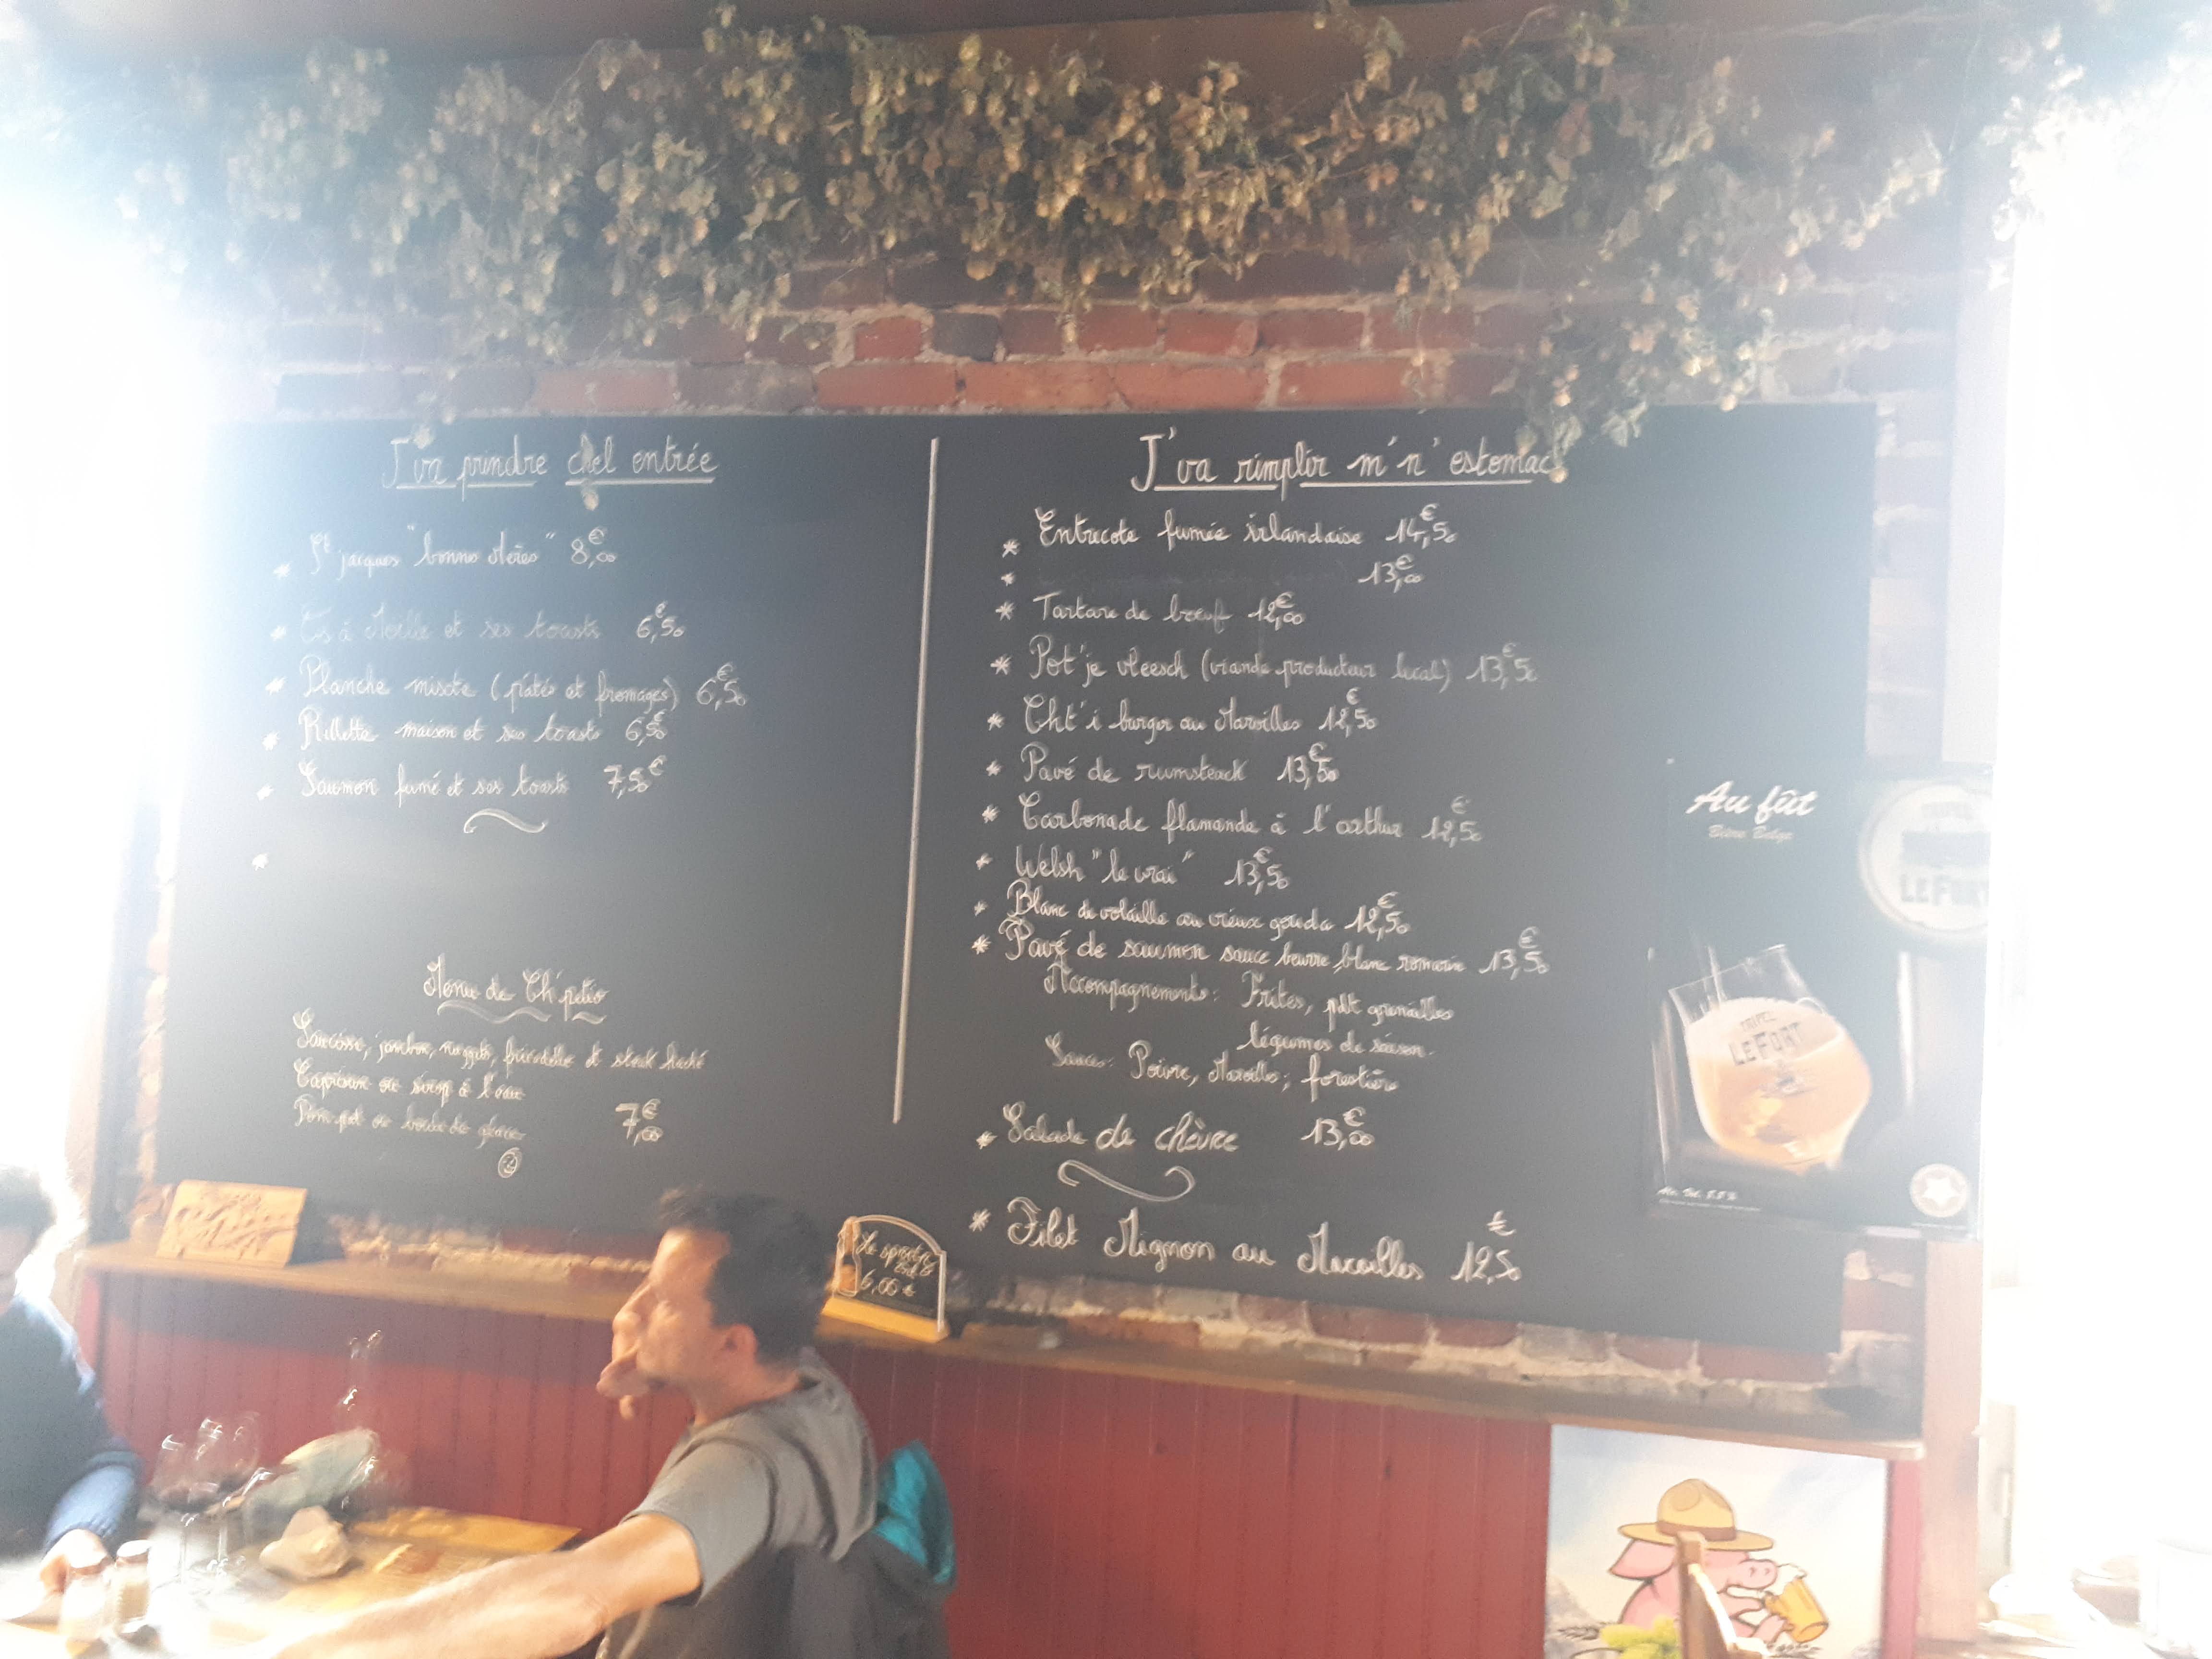 J'va prindre chel entrée
* St jacques "bonne mères" 8,00€
* Os à Moelle et ses toasts 6,50€
* Planche mixte (pâtés et fromages) 6,50€
* Rillette maison et ses toasts 6,50€
* Saumon fumé et ses toasts 7,50€
*
Menu de Ch'petio
Saucisse, jambon, nuggets, fricadelle et steak haché
Caprisun ou sirop à l'eau
Pom-pot ou boule de glace 7,00€
J'va rimplir m'n'estomac
* Entrecote fumée irlandaise 14,50€
* 13,00€
* Tartare de bœuf 12,00€
* Pot'je vleesch (viande producteur local) 13,50€
* Cht'i burger au Maroilles 12,50€
* Pavé de rumsteack 13,50€
* Carbonade flamande à l'arthur 12,50€
* Welsh "le vrai" 13,50€
* Blanc de volaille au vieux gouda 12,50€
* Pavé de saumon sauce beurre blanc romarin 13,50€
Accompagnements: Frites, pdt grenailles
légumes de saison.
Sauces: Poivre, Maroilles, forestière
* Salade de chèvre 13,00€
* Filet Mignon au Maroilles 12,50€
Au fût
Bière Belge
LE FORT
TRIPEL
LE FORT
Le
6,00€